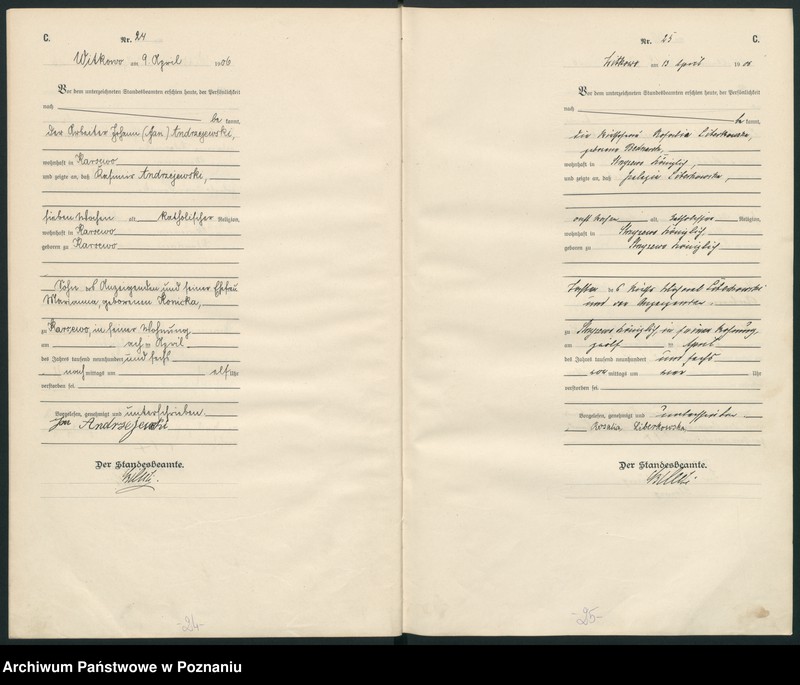 C.
Nr. 24
Witkowo am 9. April 1906
Vor dem unterzeichneten Standesbeamten erschien heute, der Persönlichkeit
nach
be kannt,
der Arbeiter Johann (Jan) Andrzejewski,
wohnhaft in Karsewo
und zeigte an, daß Kasimir Andrzejewski,
sieben Wochen alt, katholischer Religion,
wohnhaft in Karsewo
geboren zu Karsewo
Sohn des Anzeigenden und seiner Ehefrau
Marianna, geborenen Konicka,
zu Karsewo, in seiner Wohnung
am acht April
des Jahres tausend neunhundert und sechs
nach mittags um elf Uhr
verstorben sei.
Vorgelesen, genehmigt und unterschrieben
Jan Andrzejewski
Der Standesbeamte.
-24-
Nr. 25
C.
Witkowo am 13 April 1906
Vor dem unterzeichneten Standesbeamten erschien heute, der Persönlichkeit
nach
be kannt,
die Rosalia Liberkowska,
geborene
wohnhaft in königlich,
und zeigte an, daß Pelagia Liberkowska,
alt, Religion,
wohnhaft in königlich,
geboren zu königlich
Tochter des
und der Anzeigenden
zu königlich, in seiner Wohnung
am zwölf April
des Jahres tausend neunhundert und sechs
vor mittags um Uhr
verstorben sei.
Vorgelesen, genehmigt und unterschrieben
Rosalia Liberkowska
Der Standesbeamte.
-25-
Archiwum Państwowe w Poznaniu